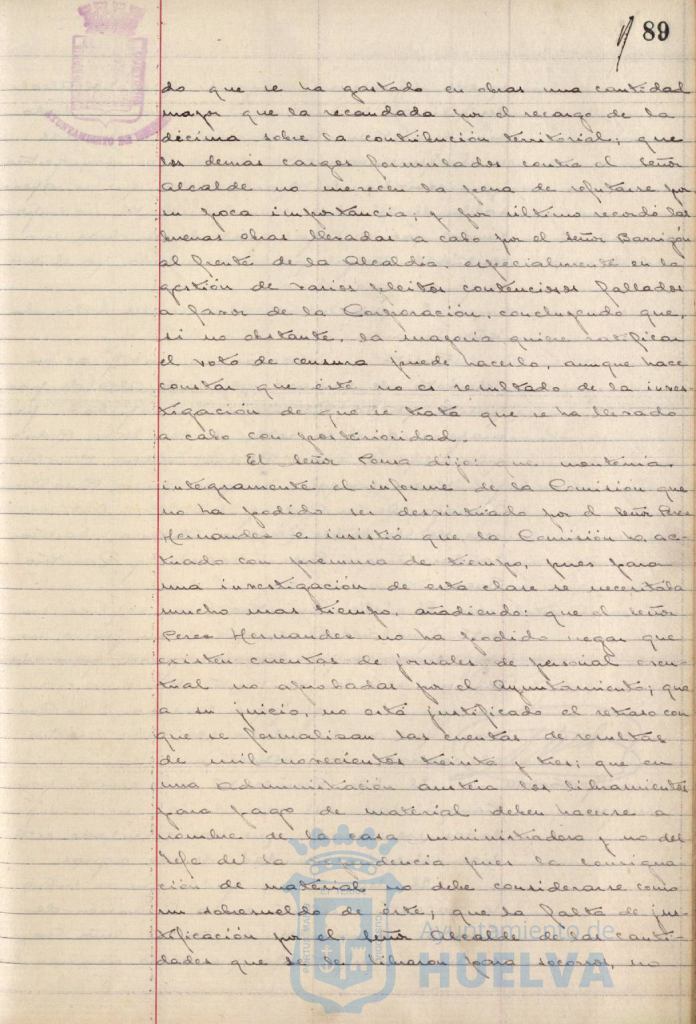 89
do que se ha gastado en obras una cantidad
mayor que la recaudada por el recargo de la
décima sobre la contribución territorial; que
los demás cargos formulados contra el Señor
Alcalde no merecen la pena de refutarse por
su poca importancia; y por último recordó las
buenas obras llevadas a cabo por el Señor Barrigón
al frente de la Alcaldía, especialmente en la
gestión de varios pleitos contenciosos fallados
a favor de la Corporación, concluyendo que,
si no obstante, la mayoría quiere ratificar
el voto de censura puede hacerlo, aunque hace
constar que éste no es resultado de la inves-
tigación de que se trata que se ha llevado
a cabo con posterioridad.
El Señor Ponsa dijo: que mantenia
integramente el informe de la Comisión que
no ha podido ser desvirtuado por el Señor Perez
Hernandez e insistió que la Comisión ha ac-
tuado con premura de tiempo, pues para
una investigación de esta clase se necesitaba
mucho mas tiempo, añadiendo: que el Señor
Perez Hernandez no ha podido negar que
existen cuentas de jornales de personal even-
tual no aprobadas por el Ayuntamiento; que
a su juicio, no está justificado el retraso con
que se formalizan las cuentas de resultas
de mil novecientos treinta y tres; que en
una Administración austera los libramientos
para pago de material deben hacerse a
nombre de la casa suministradora y no del
Jefe de la dependencia pues la consigna-
ción de material no debe considerarse como
un sobresueldo de éste; que la falta de jus-
tificación por el Señor Alcalde de las canti-
dades que se le libraron para socorros, no
AYUNTAMIENTO DE
Ayuntamiento de
HUELVA